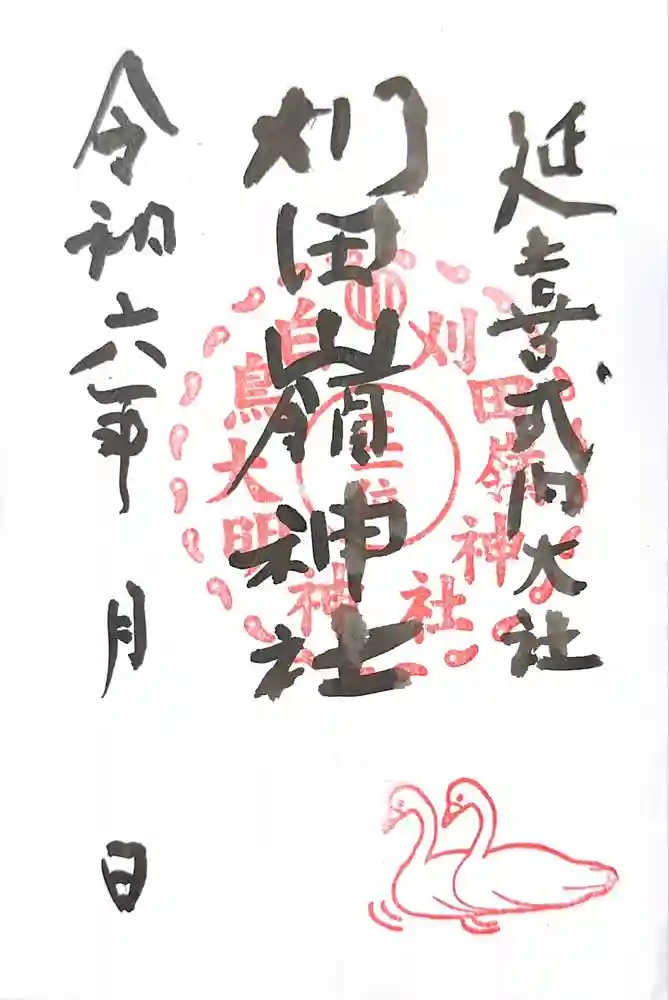 延喜式内大社
刈田嶺神社
令和六年　月　日
刈田嶺神社
白鳥大明神